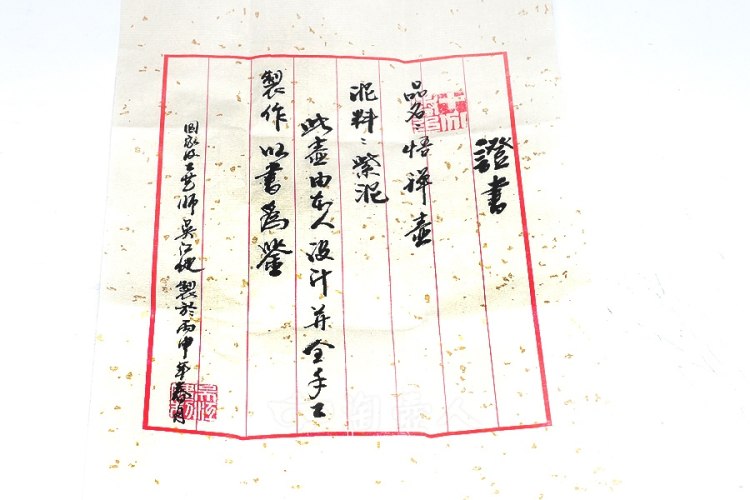 證書
品名：悟禪壺
泥料：紫泥
此壺由本人设计并全手工
製作以書為鑒
国家级工艺师吴江 製於丙申年春月